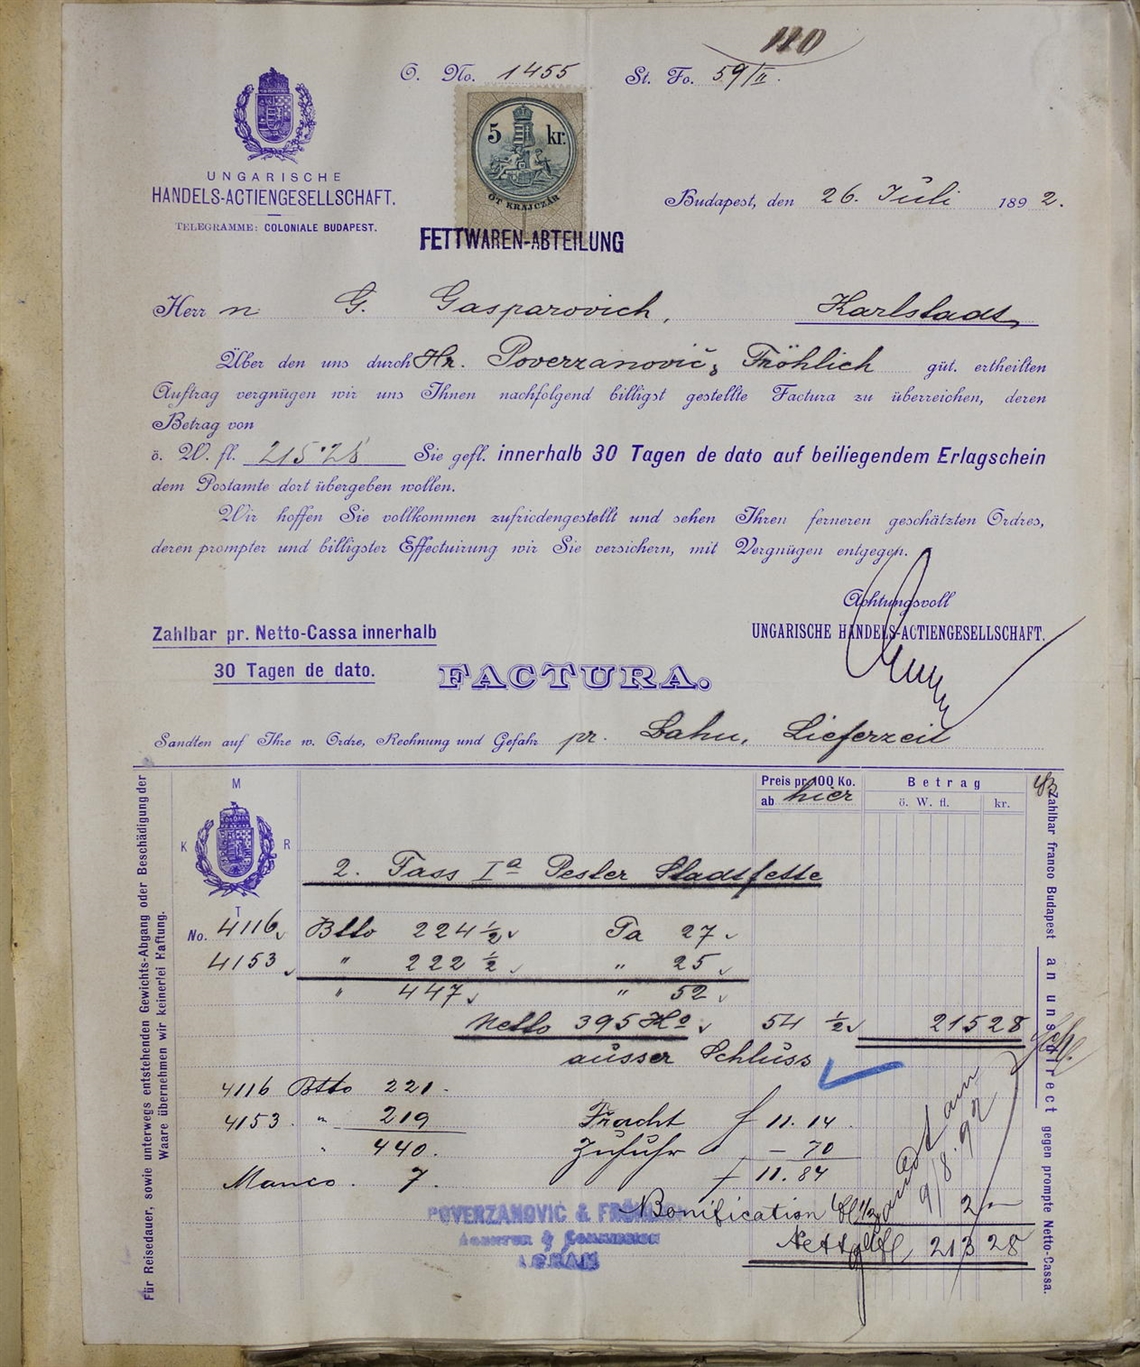 110
O. No. 1455
St. Fo. 59/II.
5 kr.
ÖT KRAJCZÁR
UNGARISCHE
HANDELS-ACTIENGESELLSCHAFT.
TELEGRAMME: COLONIALE BUDAPEST.
Budapest, den 26. Juli 1892.
FETTWAREN-ABTEILUNG
Herrn G. Gasparovich, Karlstadt
Über den uns durch Hr. Poverzanovič & Fröhlich güt. ertheilten
Auftrag vergnügen wir uns Ihnen nachfolgend billigst gestellte Factura zu überreichen, deren
Betrag von
ö. W. fl. 215·28 Sie gefl. innerhalb 30 Tagen de dato auf beiliegendem Erlagschein
dem Postamte dort übergeben wollen.
Wir hoffen Sie vollkommen zufriedengestellt und sehen Ihren ferneren geschätzten Ordres,
deren prompter und billigster Effectuirung wir Sie versichern, mit Vergnügen entgegen.
Achtungsvoll
UNGARISCHE HANDELS-ACTIENGESELLSCHAFT.
Zahlbar pr. Netto-Cassa innerhalb
30 Tagen de dato.
FACTURA.
Sandten auf Ihre w. Ordre, Rechnung und Gefahr pr. Bahn, Lieferzeit
Preis pr. 100 Ko.
ab hier
Betrag
ö. W. fl. kr.
M
K R
T
2. Fass Iª Pester Stadtfette
No. 4116 Btto 224 ½ Ta 27
4153 " 222 ½ " 25
" 447 " 52
Netto 395 Ko 54 ½ 215 28
ausser Schluss
4116 Btto 221.
4153. " 219 Fracht f 11.14
" 440. Zufuhr " – 70
Manco. 7. f 11.84
Bonification 2 –
Netto 213 28
9/8.92
POVERZANOVIC & FRÖHLICH
AGENTUR & COMMISSION
AGRAM
Für Reisedauer, sowie unterwegs entstehenden Gewichts-Abgang oder Beschädigung der
Waare übernehmen wir keinerlei Haftung.
Zahlbar franco Budapest an uns direct gegen prompte Netto-Cassa.